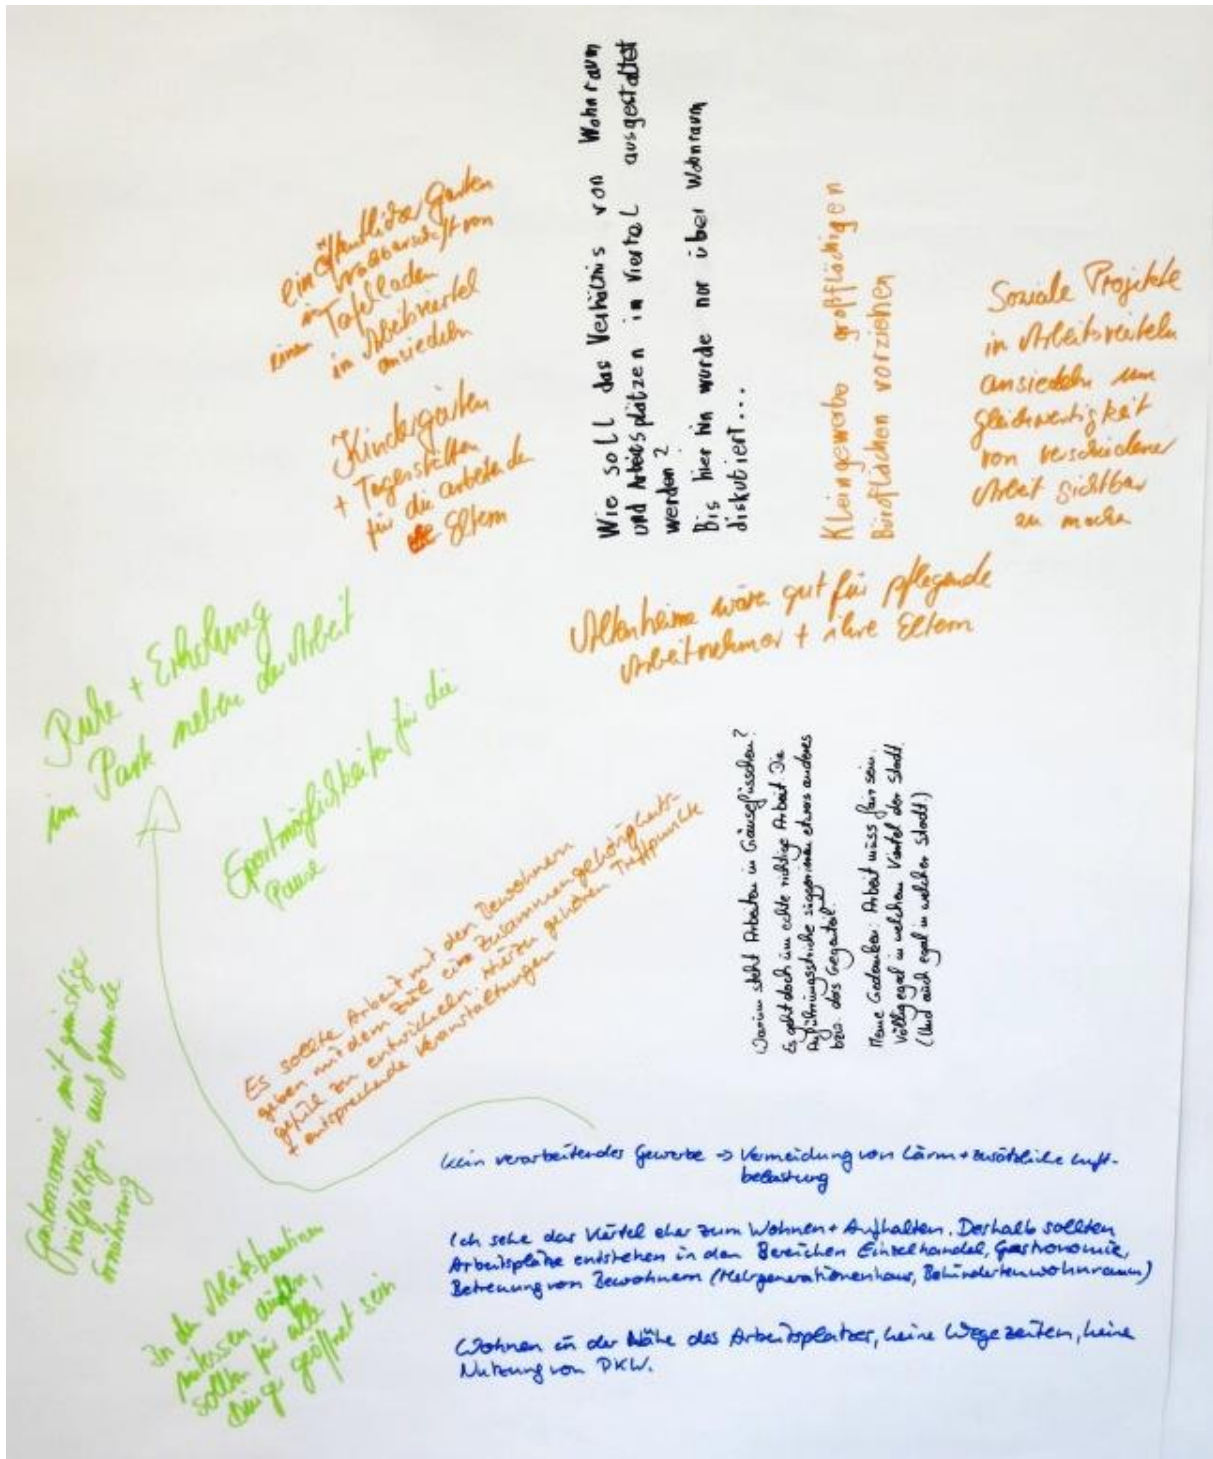 ein öffentlicher Garten
in Nachbarschaft von
einem Tafelladen
im Arbeitsviertel
ansiedeln
Kindergärten
+ Tagesstätten
für die arbeitende
Eltern
Wie soll das Verhältnis von Wohnraum
und Arbeitsplätzen in Viertel ausgestaltet
werden?
Bis hier hin wurde nur über Wohnraum
diskutiert...
Kleingewerbe großflächigen
Büroflächen vorziehen
Soziale Projekte
in Arbeitsvierteln
ansiedeln um
Gleichwertigkeit
von verschiedener
Arbeit sichtbar
zu machen
Altenheime wären gut für pflegende
Arbeitnehmer + ihre Eltern
Ruhe + Erholung
im Park neben der Arbeit
Sportmöglichkeiten für die
Pause
Es sollte Arbeit mit den Bewohnern
geben mit dem Ziel ein Zusammengehörigkeits-
gefühl zu entwickeln. Hierzu gehören Treffpunkte
+ entsprechende Veranstaltungen
Warum steht Arbeiten in Gänsefüsschen?
Es geht doch um echte richtige Arbeit. Die
Anführungsstriche suggerieren etwas anderes
bzw. das Gegenteil.
Meine Gedanken: Arbeit muss fair sein.
Völlig egal in welchem Viertel der Stadt.
(Und auch egal in welcher Stadt.)
Gastronomie mit günstige
vielfältige, auch gesunde
Ernährung
In den Arbeitskantinen
mitessen dürfen,
sollten für alle
geöffnet sein
kein verarbeitendes Gewerbe → Vermeidung von Lärm + zusätzliche Luft-
belastung
Ich sehe das Viertel eher zum Wohnen + Aufhalten. Deshalb sollten
Arbeitsplätze entstehen in den Bereichen Einzelhandel, Gastronomie,
Betreuung von Bewohnern (Mehrgenerationenhaus, Behindertenwohnraum)
Wohnen in der Nähe des Arbeitsplatzes, keine Wegezeiten, keine
Nutzung von PKW.